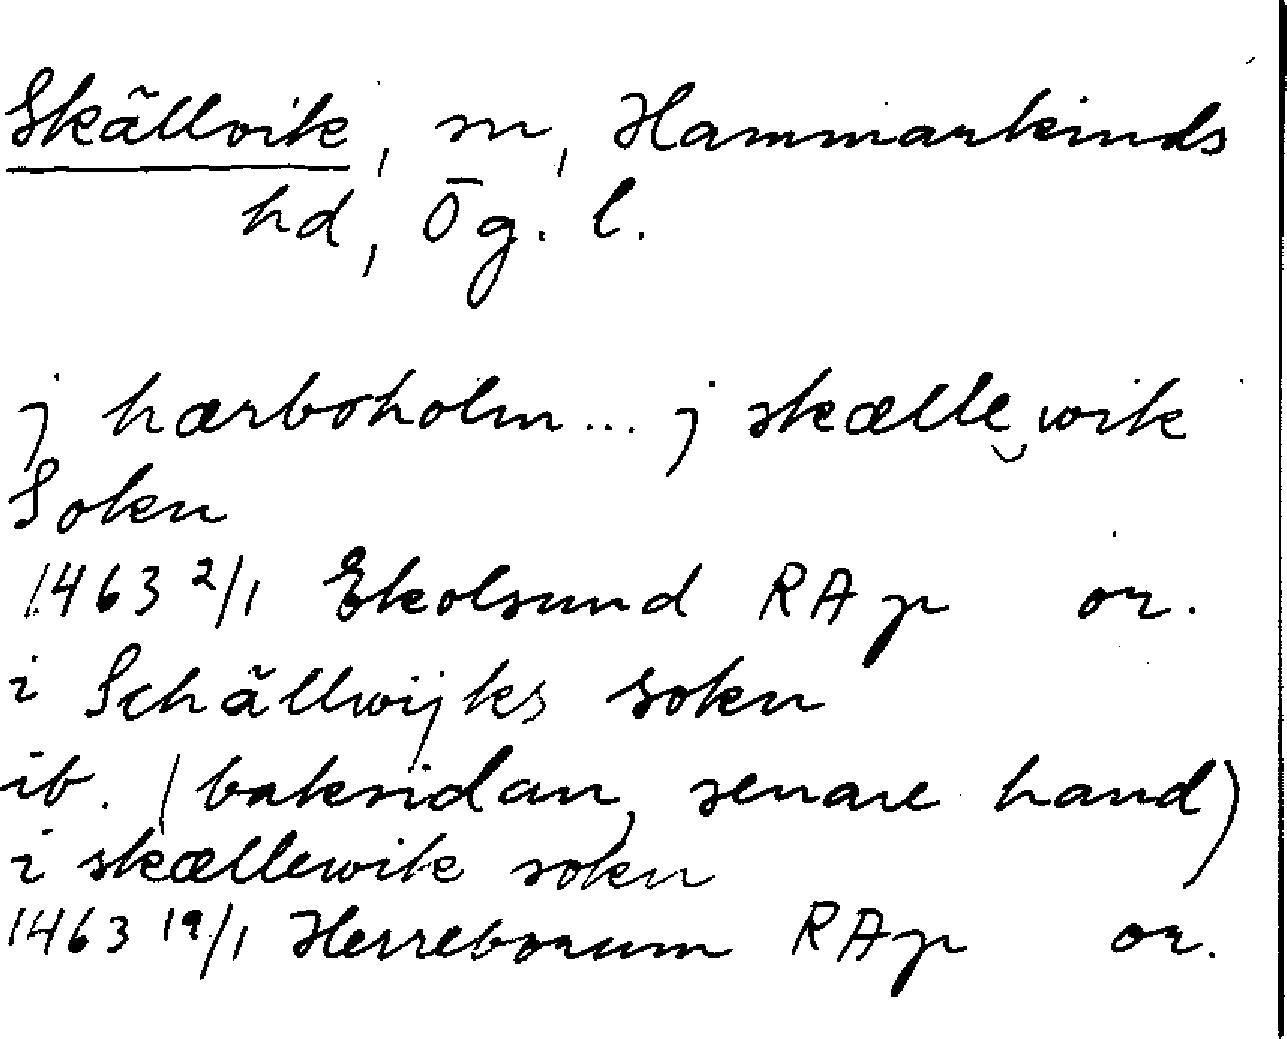 Skällvik, sn, Hammarkinds
hd, Ög. l.
j hærboholm... j skælle wik
Sokn
1463 2/1 Ekolsund RAp or.
i Schällwijks sokn
ib. (baksidan, senare hand)
i skællewik sokn
1463 19/1 Herreborum RAp or.